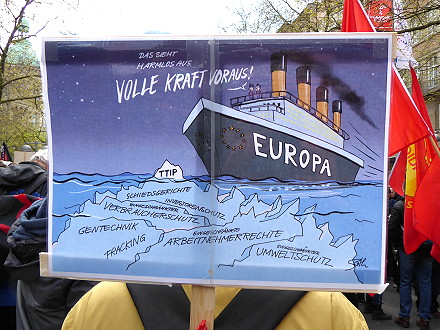 DAS SIEHT
HARMLOS AUS.
VOLLE KRAFT VORAUS!
EUROPA
TTIP
SCHIEDSGERICHTE
INVESTORENSCHUTZ
EINGESCHRÄNKTER
VERBRAUCHERSCHUTZ
GENTECHNIK
FRACKING
EINGESCHRÄNKTE
ARBEITNEHMERRECHTE
EINGESCHRÄNKTER
UMWELTSCHUTZ